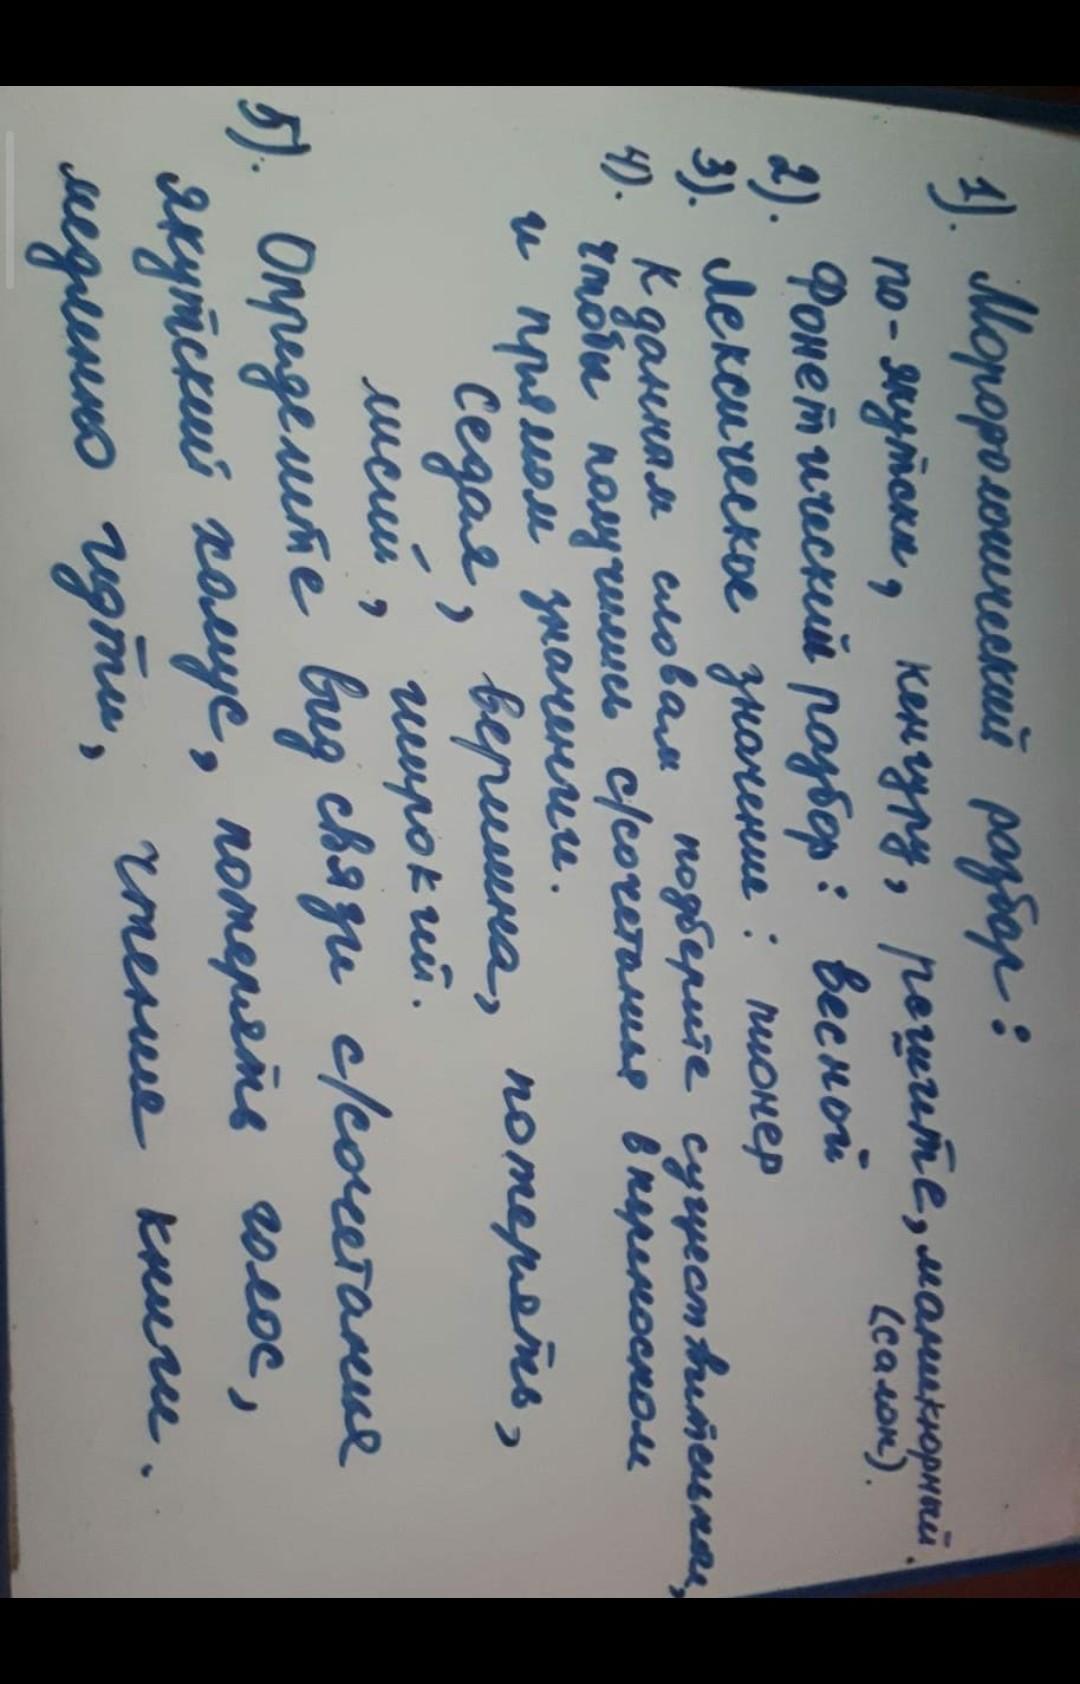 1). Морфологический разбор:
по-якутски, кенгуру, решите, маникюрный.
(салон).
2). Фонетический разбор: весной
3). Лексическое значение: пионер
4). К данным словам подберите существительные,
чтобы получились с/сочетания в переносном
и прямом значении.
Седая, вершина, потерять,
лисий, широкий.
5). Определите вид связи с/сочетания
якутский хомус, потерять голос,
медленно идти, чтение книги.